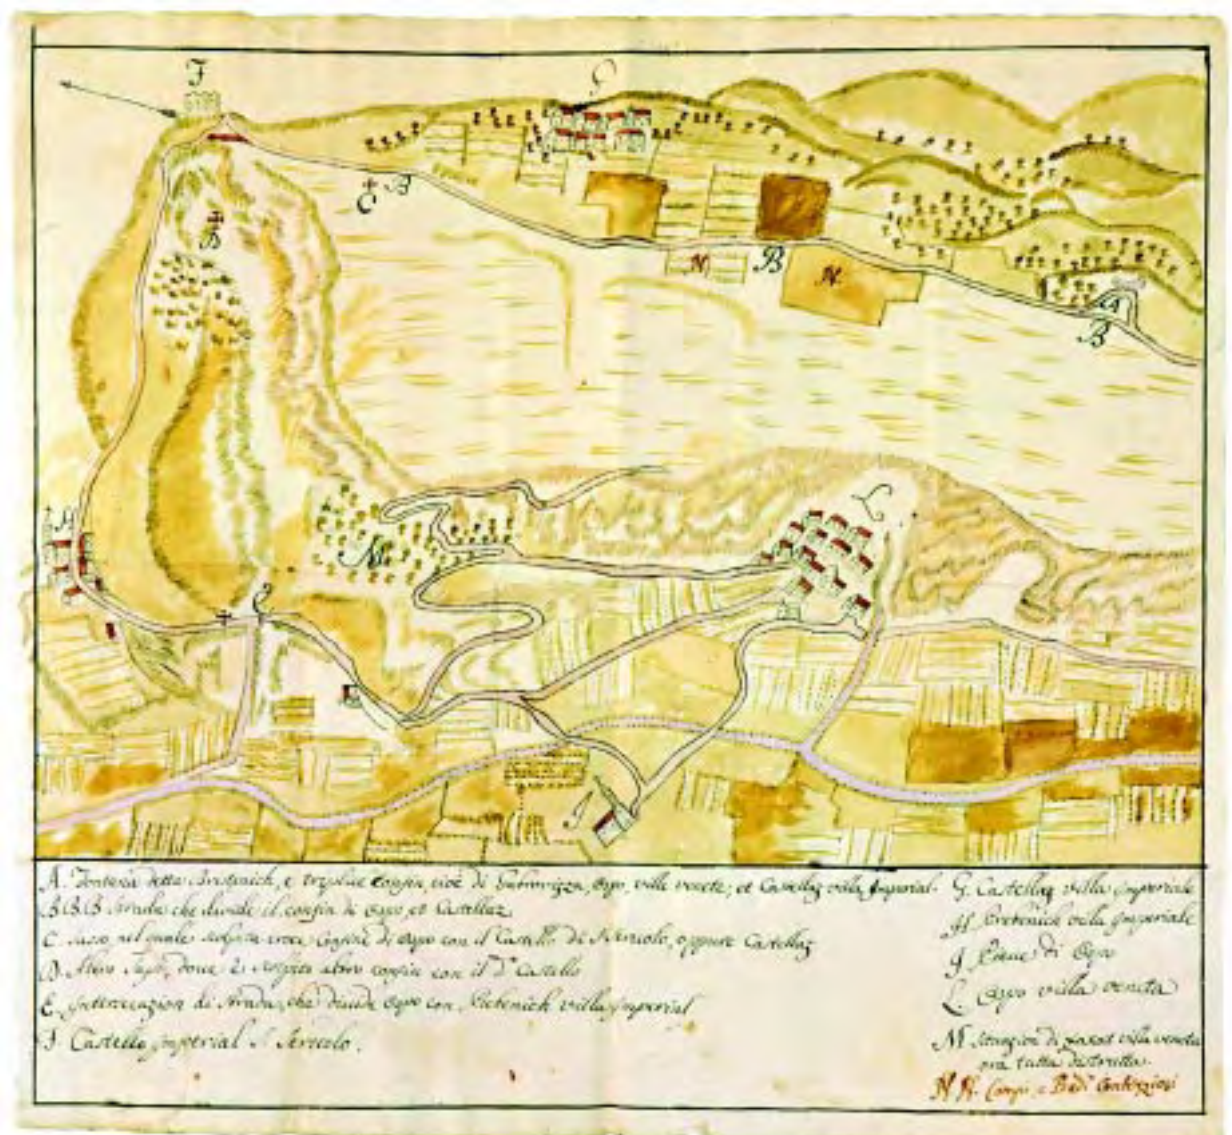 F
G
C
B
D
N
B
N.
A
B
H
L
M
E
I
A. Fontana detta Bristenich, e triplice confin, cioè di Gabrovizza, Ospo, ville venete, et Castellaz villa Imperial.
B.B.B. Strada che divide il confin di Ospo, et Castellaz
C. sasso nel quale scolpita croce confine di Ospo con il Castello di S. Servolo, oppure Castellaz
D. Altro Sasso, dove è scolpito altro confin con il d.º Castello
E. Intersecazion di Strada, che divide Ospo con villa Imperial
F. Castello Imperial S. Servolo.
G. Castellaz villa Imperiale
H villa Imperiale
I Pieve di Ospo
L. Ospo villa veneta
M. Situazion di villa veneta
ora tutta distrutta.
N N. Campi e Pradi Contenziosi